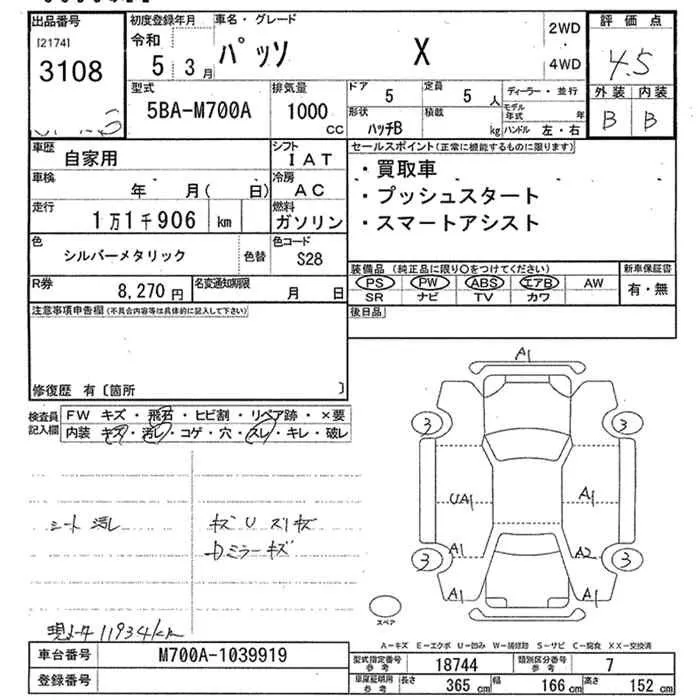 出品番号
[2174]
3108
初度登録年月
令和
5 3月
車名・グレード
パッソ X
2WD
4WD
評価点
4.5
外装 内装
B B
型式
5BA-M700A
排気量
1000
CC
ドア
5
定員
5 人
ディーラー・並行
形状
ハッチB
積載
kg
モデル年式 年
ハンドル 左・右
車歴
自家用
シフト
IAT
車検
年 月( 日)
冷房
AC
走行
1万1千906 km
燃料
ガソリン
色
シルバーメタリック
色替
色コード
S28
R券
8,270円
名変通知期限
月 日
セールスポイント(正常に機能するものに限ります)
・買取車
・プッシュスタート
・スマートアシスト
装備品 (純正品に限り○をつけてください)
PS PW ABS エアB AW
SR ナビ TV カワ
新車保証書
有・無
後日品
注意事項申告欄(不具合内容等は具体的に記入して下さい)
修復歴 有〔箇所 〕
検査員記入欄
FW キズ・飛石・ヒビ割・リペア跡・×要
内装 キズ・汚れ・コゲ・穴・スレ・キレ・破レ
シート汚れ
キズU スリキズ
Dミラーキズ
現メータ 11934km
A1
3 3
UA1 A1
A1 A2
3 3
A1 A1
スペア
A-キズ E-エクボ U-凹み W-補修跡 S-サビ C-腐食 XX-交換済
車台番号
M700A-1039919
登録番号
型式指定番号
参考
18744
類別区分番号
参考
7
車庫証明用
参考
長さ 365 cm 幅 166 cm 高さ 152 cm